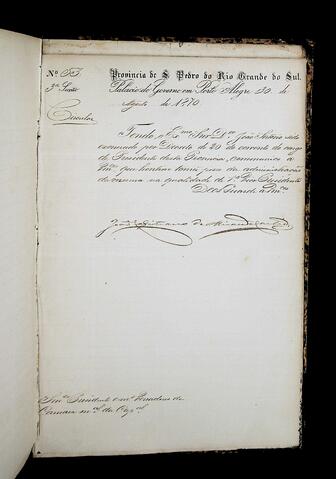 Provincia de S. Pedro do Rio Grande do Sul.
Nº 53
Palacio do Governo em Porto Alegre 30 de
3ª
Agosto de 1870
Circular
Tendo o Exmo Snr Dr João Sertorio sido
exonerado por Decreto de 20 do corrente do cargo
de Presidente desta Provincia, communico a
Vmces que hontem tomei posse da administração
da mesma na qualidade de Vice Presidente
Deos Guarde a Vmces
João
Snres Presidente e mais Vereadores da
Camara